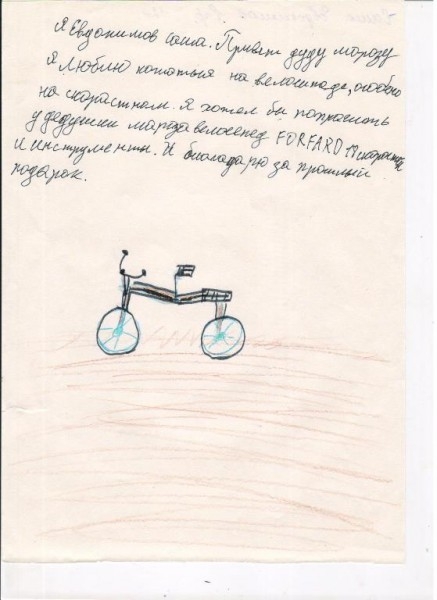 Я Евдокимов Саша. Привет деду морозу
Я люблю кататься на велосипаде, особено
на скорастном. Я хотел бы попрасить
у дедушки мароза велосепед FORFARD 18 скорасной
и инструменты. И благадарю за прошлый
подарок.